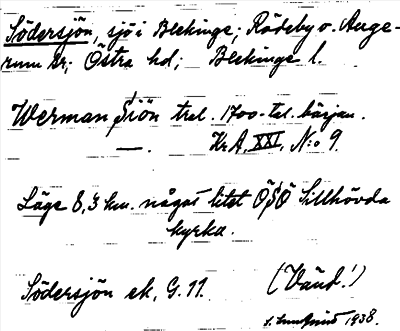 Södersjön, sjö i Blekinge; Rödeby o. Auge-
rum sr; Östra hd; Blekinge l.
Werman Siön trol. 1700-tal. början.
—. Kr. A. XXI, N:o 9.
Läge 8,3 km. något litet ÖSÖ Sillhövda
kyrka.
Södersjön ek, G. 11. (Vänd!)
1938.